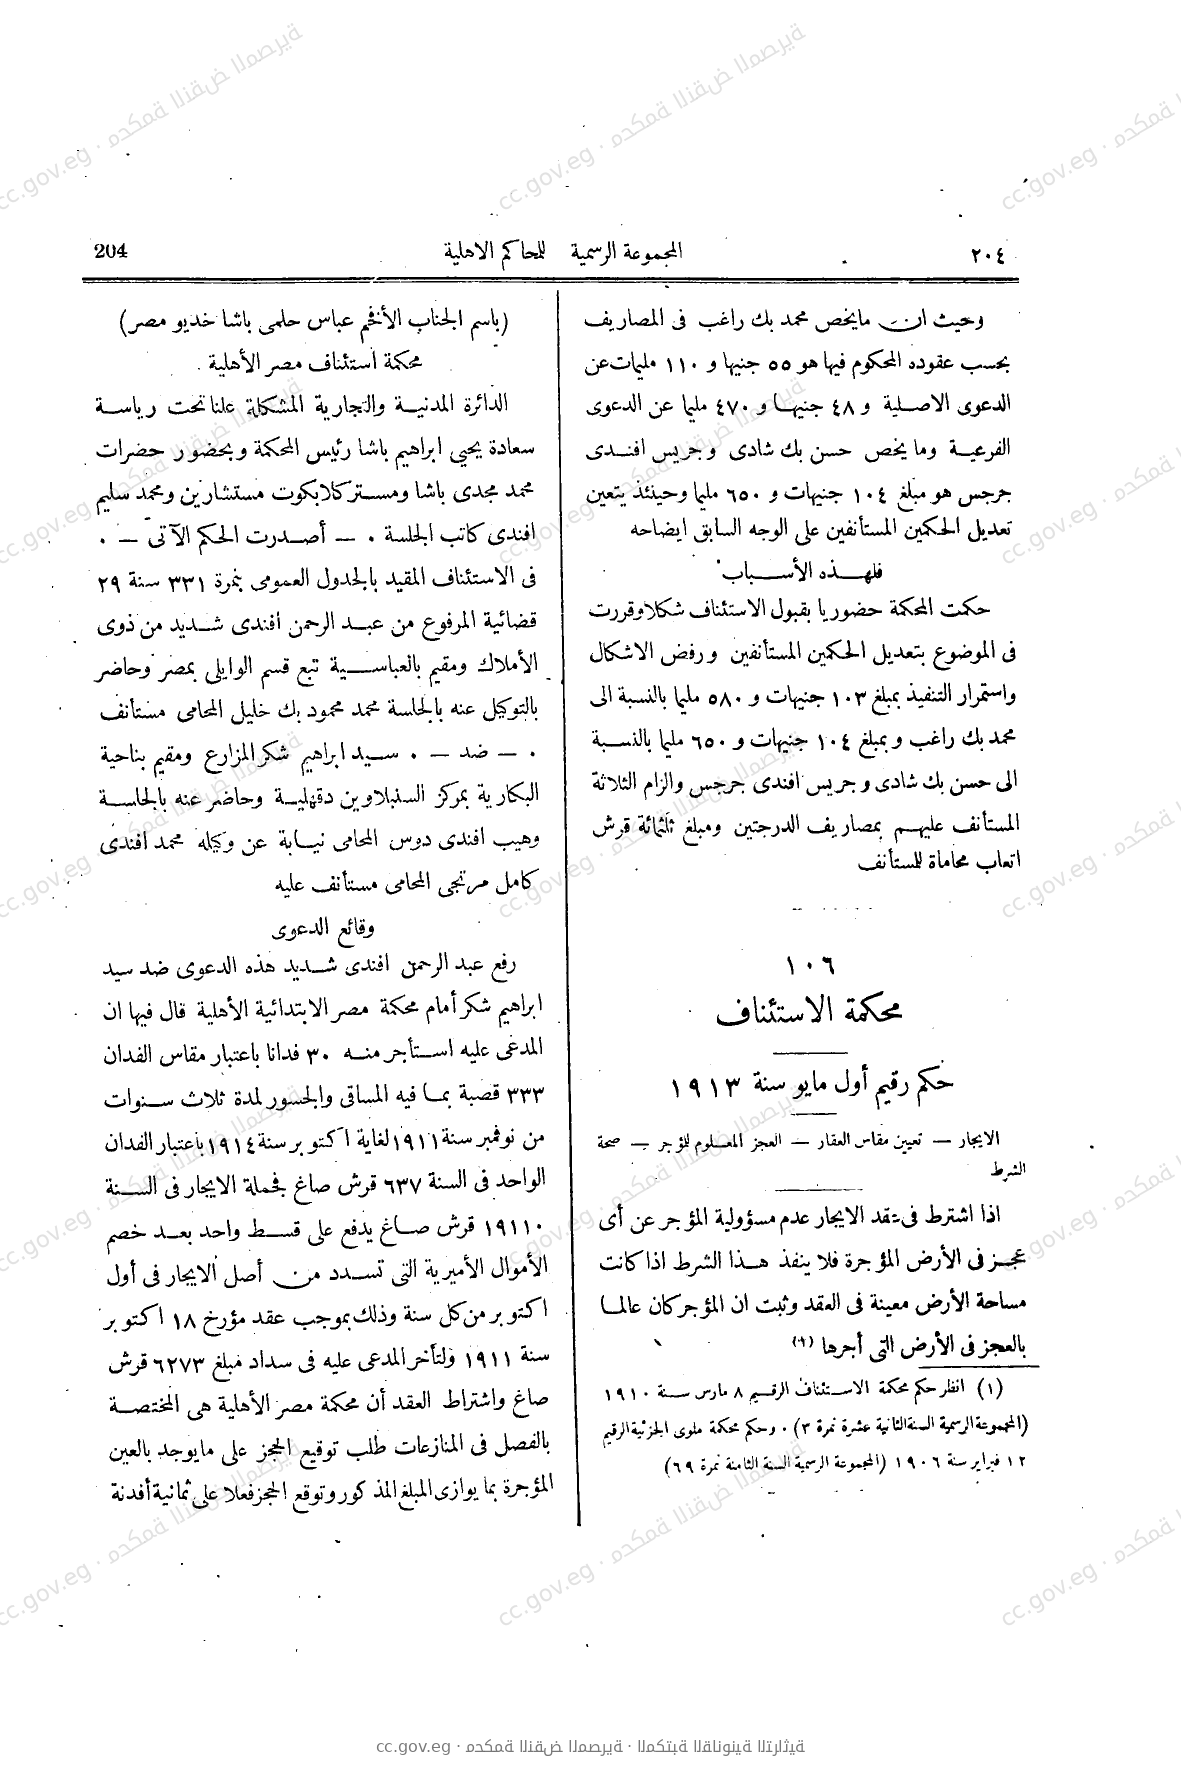 ٢٠٤
المجموعة الرسمية للمحاكم الاهلية
204
وحيث ان مايخص محمد بك راغب فى المصاريف
بحسب عقوده المحكوم فيها هو ٥٥ جنيها و ١١٠ مليمات عن
الدعوى الاصلية و ٤٨ جنيها و ٤٧٠ مليما عن الدعوى
الفرعية وما يخص حسن بك شادى وجريس افندى
جرجس هو مبلغ ١٠٤ جنيهات و ٦٥٠ مليما وحينئذ يتعين
تعديل الحكمين المستأنفين على الوجه السابق ايضاحه
فلهذه الأسباب
حكمت المحكمة حضوريا بقبول الاستئناف شكلا وقررت
فى الموضوع بتعديل الحكمين المستأنفين ورفض الاشكال
واستمرار التنفيذ بمبلغ ١٠٣ جنيهات و ٥٨٠ مليما بالنسبة الى
محمد بك راغب وبمبلغ ١٠٤ جنيهات و ٦٥٠ مليما بالنسبة
الى حسن بك شادى وجريس افندى جرجس والزام الثلاثة
المستأنف عليهم بمصاريف الدرجتين ومبلغ ثلثمائة قرش
اتعاب محاماة للمستأنف
١٠٦
محكمة الاستئناف
حكم رقيم أول مايو سنة ١٩١٣
الايجار — تعيين مقاس العقار — العجز المعلوم للمؤجر — صحة
الشرط
اذا اشترط فى عقد الايجار عدم مسؤولية المؤجر عن أى
عجز فى الأرض المؤجرة فلا ينفذ هذا الشرط اذا كانت
مساحة الأرض معينة فى العقد وثبت ان المؤجر كان عالما
بالعجز فى الأرض التى أجرها (١)
(١) انظر حكم محكمة الاستئناف الرقيم ٨ مارس سنة ١٩١٠
(المجموعة الرسمية السنة الثانية عشرة نمرة ٣) . وحكم محكمة ملوى الجزئية الرقيم
١٢ فبراير سنة ١٩٠٦ (المجموعة الرسمية السنة الثامنة نمرة ٦٩)
(باسم الجناب الأفخم عباس حلمى باشا خديو مصر)
محكمة استئناف مصر الأهلية .
الدائرة المدنية والتجارية المشكلة علنا تحت رياسة
سعادة يحيى ابراهيم باشا رئيس المحكمة وبحضور حضرات
محمد مجدى باشا ومستر كلايكوت مستشارين ومحمد سليم
افندى كاتب الجلسة . — أصدرت الحكم الآتى — .
فى الاستئناف المقيد بالجدول العمومى بنمرة ٣٣١ سنة ٢٩
قضائية المرفوع من عبد الرحمن افندى شديد من ذوى
الأملاك ومقيم بالعباسية تبع قسم الوايلى بمصر وحاضر
بالتوكيل عنه بالجلسة محمد محمود بك خليل المحامى مستأنف
. — ضد — . سيد ابراهيم شكر المزارع ومقيم بناحية
البكارية بمركز السنبلاوين دقهلية وحاضر عنه بالجلسة
وهيب افندى دوس المحامى نيابة عن وكيله محمد افندى
كامل مرتجى المحامى مستأنف عليه
وقائع الدعوى
رفع عبد الرحمن افندى شديد هذه الدعوى ضد سيد
ابراهيم شكر أمام محكمة مصر الابتدائية الأهلية قال فيها ان
المدعى عليه استأجر منه ٣٠ فدانا باعتبار مقاس الفدان
٣٣٣ قصبة بما فيه المساقى والجسور لمدة ثلاث سنوات
من نوفمبر سنة ١٩١١ لغاية اكتوبر سنة ١٩١٤ باعتبار الفدان
الواحد فى السنة ٦٣٧ قرش صاغ فجملة الايجار فى السنة
١٩١١٠ قرش صاغ يدفع على قسط واحد بعد خصم
الأموال الأميرية التى تسدد من أصل الايجار فى أول
اكتوبر من كل سنة وذلك بموجب عقد مؤرخ ١٨ اكتوبر
سنة ١٩١١ ولتأخر المدعى عليه فى سداد مبلغ ٦٢٧٣ قرش
صاغ واشتراط العقد أن محكمة مصر الأهلية هى المختصة
بالفصل فى المنازعات طلب توقيع الحجز على مايوجد بالعين
المؤجرة بما يوازى المبلغ المذكور وتوقع الحجز فعلا على ثمانية أفدنة
cc.gov.eg · محكمة النقض المصرية · المكتبة القانونية التراثية